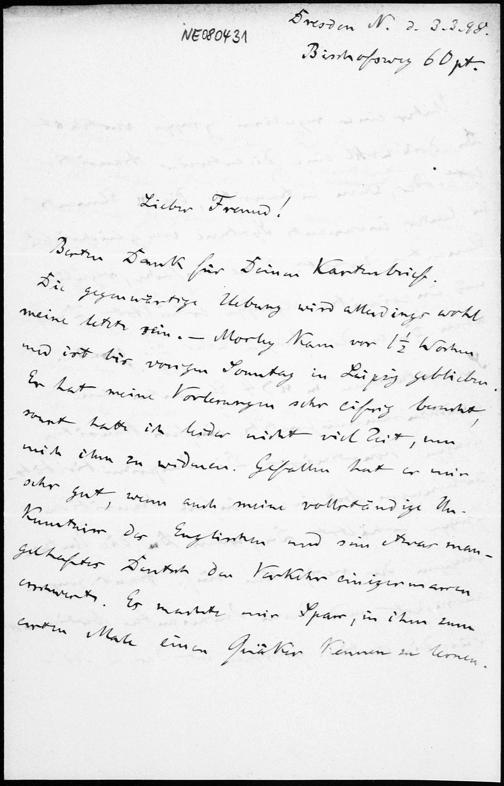 NE080431
Dresden N. d. 3.3.98.
Bischofsweg 60 pt.
Lieber Freund!
Besten Dank für Deinen Kartenbrief.
Die gegenwärtige Uebung wird allerdings wohl
meine letzte sein. — Morley kam vor 1 1/2 Wochen
und ist bis vorigen Sonntag in Leipzig geblieben.
Er hat meine Vorlesungen sehr eifrig besucht,
sonst hatte ich leider nicht viel Zeit, um
mich ihm zu widmen. Gefallen hat er mir
sehr gut, wenn auch meine vollständige Un-
kenntniss des Englischen und sein etwas man-
gelhaftes Deutsch den Verkehr einigermassen
erschwerte. Es machte mir Spass, in ihm zum
ersten Male einen Quäker kennen zu lernen.